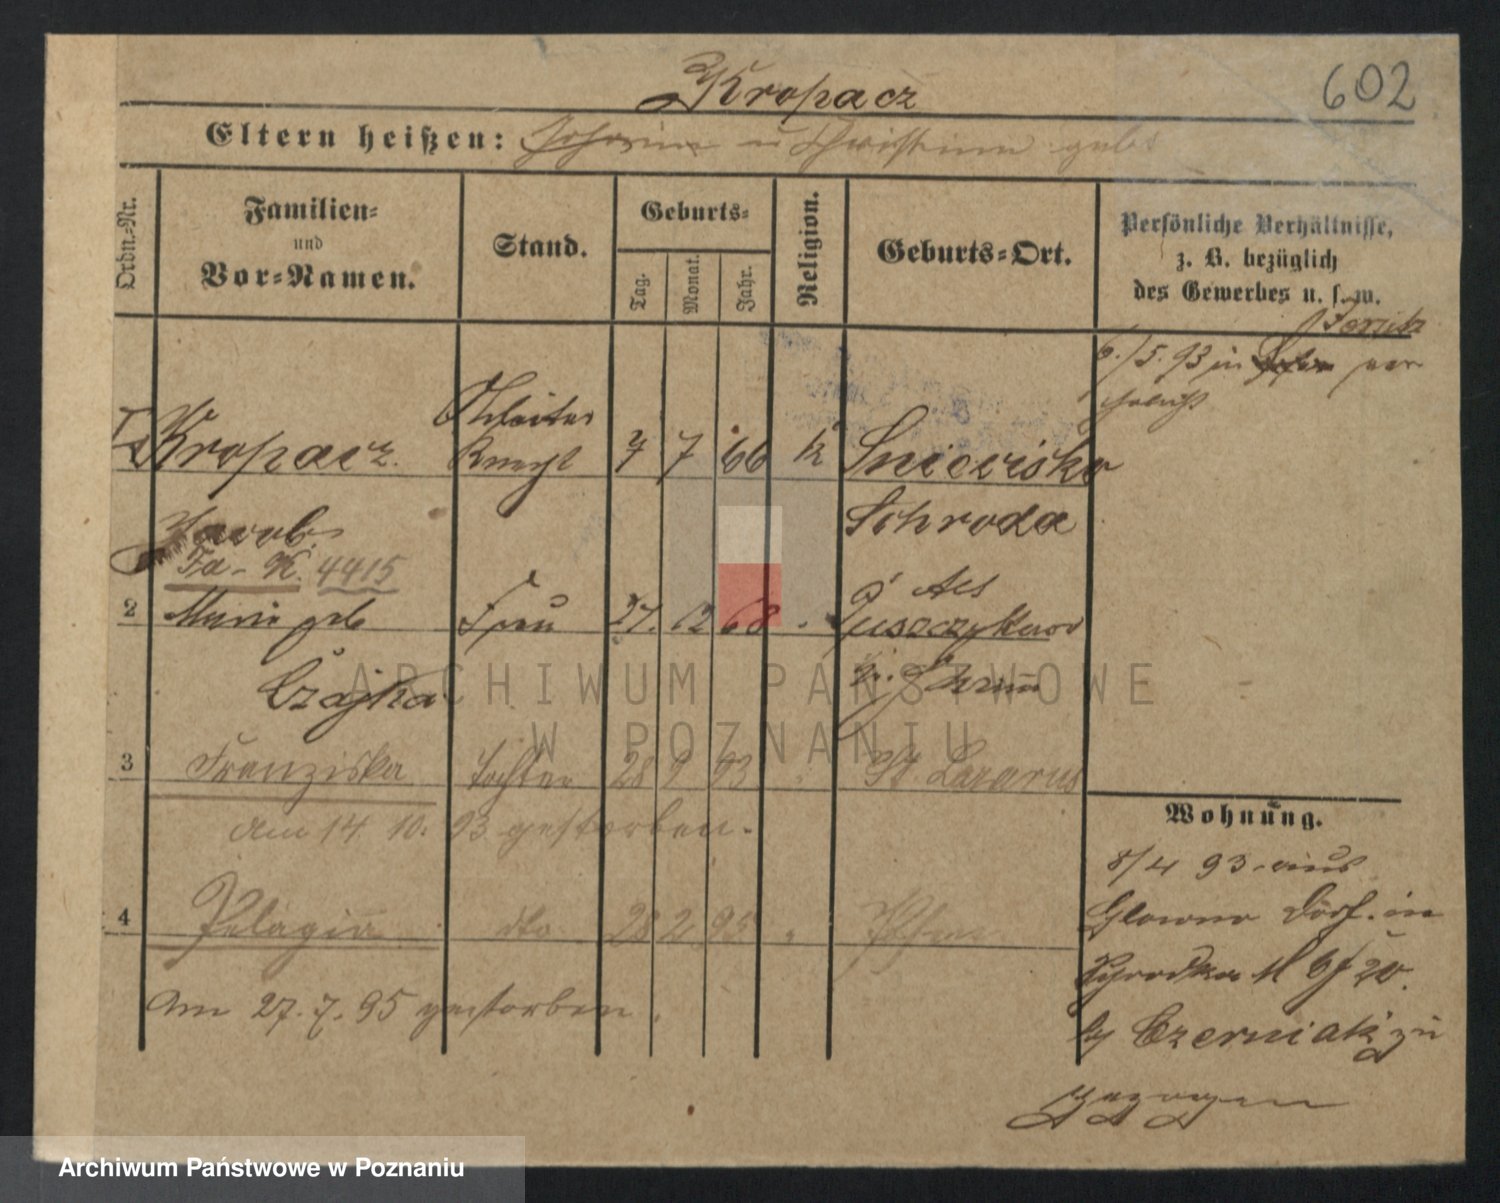 Kropacz
602
Eltern heißen: Johann u Christine geb.
Ordn.-Nr.
Familien-
und
Vor-Namen.
Stand.
Geburts-
Tag.
Monat.
Jahr.
Religion.
Geburts-Ort.
Persönliche Verhältnisse,
z. B. bezüglich
des Gewerbes u. s. w.
Jersitz
6./5. 93 in
Arbeiter
Kropacz. Knecht 7 7 66 k
Jacob Schroda
Fa-K. 4415
2 Marie geb Frau 27. 12 68
Als
Puszczykowo
Czajka Schrimm
3 Franziska Tochter 28 9 93 St. Lazarus
am 14. 10. 93 gestorben.
4 Pelagia dto 28 2 95
am 27. 7. 95 gestorben.
Wohnung.
8/4 93 aus
Glowno Dorf. in
Schrodka 11 bf 20.
by Czerniak zu
gezogen
ARCHIWUM PAŃSTWOWE
W POZNANIU
Archiwum Państwowe w Poznaniu